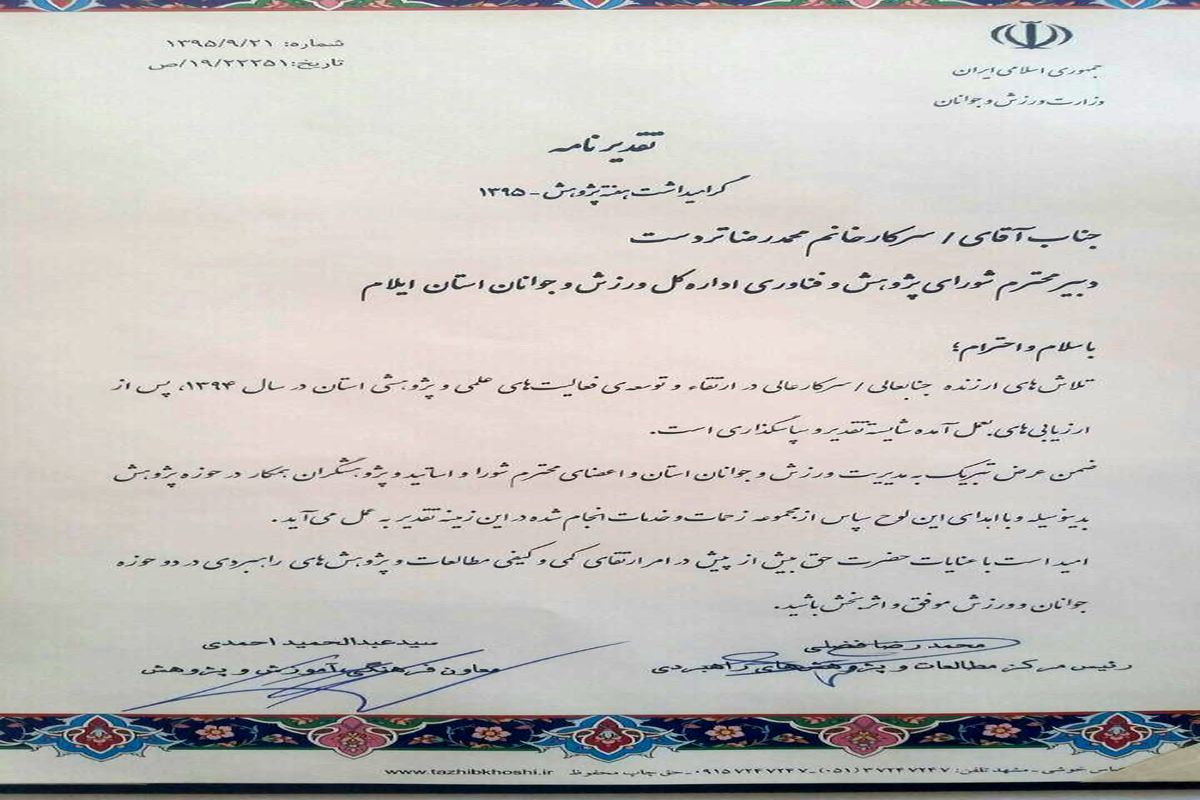 جمهوری اسلامی ایران
وزارت ورزش و جوانان
شماره: ۱۳۹۵/۹/۲۱
تاریخ: ۱۹/۲۲۲۵۱/ص
تقدیرنامه
گرامیداشت هفته پژوهش - ۱۳۹۵
جناب آقای / سرکار خانم محمدرضا تردست
دبیر محترم شورای پژوهش و فناوری اداره کل ورزش و جوانان استان ایلام
با سلام و احترام؛
تلاش‌های ارزنده جنابعالی / سرکارعالی در ارتقاء و توسعه‌ی فعالیت‌های علمی و پژوهشی استان در سال ۱۳۹۴، پس از
ارزیابی‌های بعمل آمده شایسته تقدیر و سپاسگذاری است.
ضمن عرض تبریک به مدیریت ورزش و جوانان استان و اعضای محترم شورا و اساتید و پژوهشگران همکار در حوزه پژوهش
بدینوسیله و با اهدای این لوح سپاس از مجموعه زحمات و خدمات انجام شده در این زمینه تقدیر به عمل می‌آید.
امید است با عنایات حضرت حق بیش از پیش در امر ارتقای کمی و کیفی مطالعات و پژوهش‌های راهبردی در دو حوزه
جوانان و ورزش موفق و اثربخش باشید.
محمدرضا فضلی
رئیس مرکز مطالعات و پژوهش‌های راهبردی
سیدعبدالحمید احمدی
معاون فرهنگی، آموزش و پژوهش
خوشی - مشهد تلفن: ۳۷۲۴۷۲۴۷ (۰۵۱) - ۰۹۱۵۷۲۴۷۲۴۷ - حق چاپ محفوظ www.tazhibkhoshi.ir